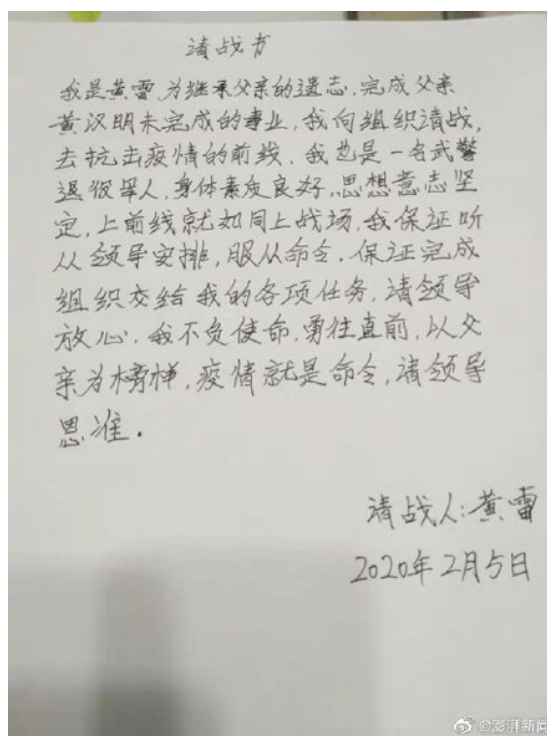 请战书
我是黄雷,为继承父亲的遗志,完成父亲
黄汉明未完成的事业,我向组织请战,
去抗击疫情的前线。我也是一名武警
退役军人,身体素质良好,思想意志坚
定,上前线就如同上战场,我保证听
从领导安排,服从命令,保证完成
组织交给我的各项任务,请领导
放心。我不负使命,勇往直前,以父
亲为榜样,疫情就是命令,请领导
恩准。
请战人:黄雷
2020年2月5日
@澎湃新闻